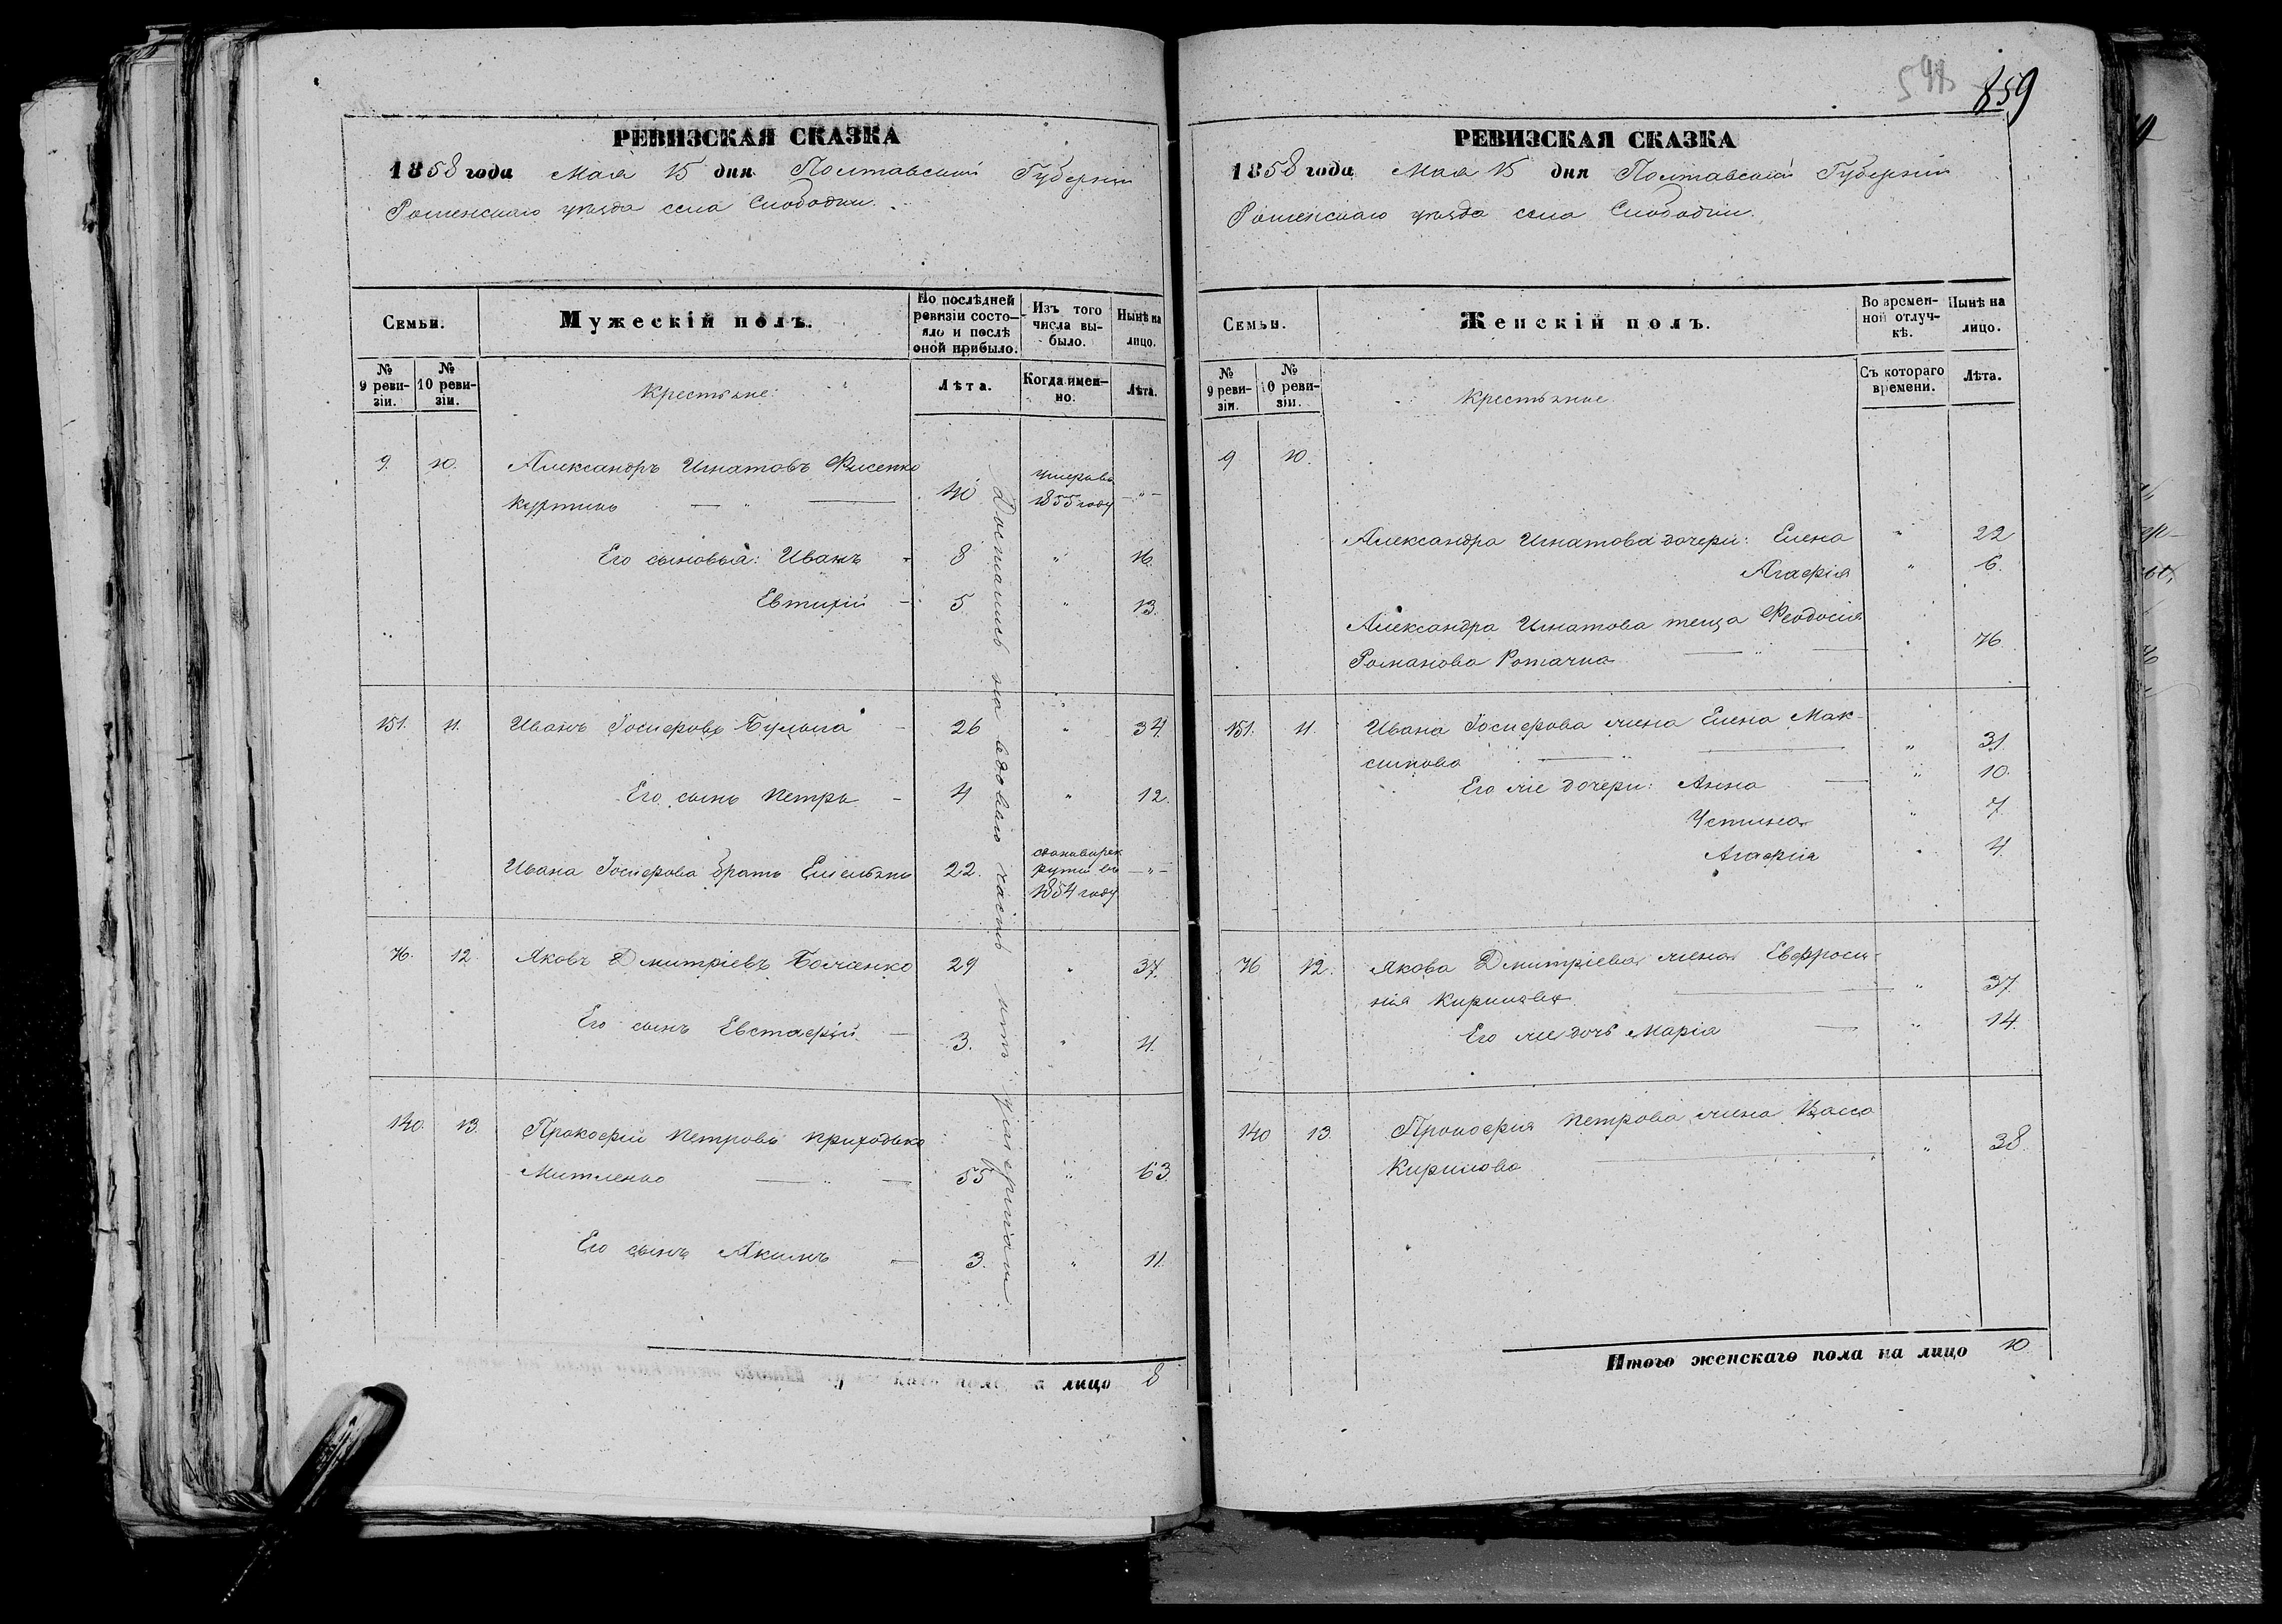 РЕВИЗСКАЯ СКАЗКА
1858 года Мая 15 дня Полтавской Губерніи
Роменскаго уѣзда села Слободки.
Семьи.
Мужескій полъ.
По послѣдней ревизіи состояло и послѣ оной прибыло.
Изъ того числа выбыло.
Нынѣ на лицо.
№ 9 ревизіи.
№ 10 ревизіи.
Крестьяне:
Лѣта.
Когда именно.
Лѣта.
9. 10. Александръ Игнатовъ Фисенко
Куртикъ 40 умеръ въ 1855 году — " —
Его сыновья: Иванъ - 8 " 16.
Евтихій - 5. " 13.
151. 11. Иванъ Іосифовъ Бульба - 26 " 34.
Его сынъ Петръ - 4 " 12.
Ивана Іосифова братъ Емельянъ 22. въ 1854 году — " —
76. 12. Яковъ Дмитріевъ 29 " 37.
Его сынъ Евстафій — 3. " 11.
140. 13. Прокофій Петровъ Приходько
55 " 63.
Его сынъ Акимъ — 3. " 11.
Достались на вдовью часть
на лицо 8
548 859
РЕВИЗСКАЯ СКАЗКА
1858 года Мая 15 дня Полтавской Губерніи
Роменскаго уѣзда села Слободки.
Семьи.
Женскій полъ.
Во временной отлучкѣ.
Нынѣ на лицо.
№ 9 ревизіи.
№ 10 ревизіи.
Крестьяне
Съ котораго времени.
Лѣта.
9 10.
Александра Игнатова дочери: Елена " 22
Агафія " 6.
Александра Игнатова теща Феодосія
Романова " 76
151. 11. Ивана Іосифова жена Елена Мак-
симова " 31.
Его же дочери: Анна — " 10.
Устина " 7.
Агафія " 4.
76 12. Якова Дмитріева жена Евфроси-
нія Кирилова " 37.
Его же дочь Марія — " 14.
140 13. Прокофія Петрова жена Васса
Кирилова " 38.
Итого женскаго пола на лицо 10